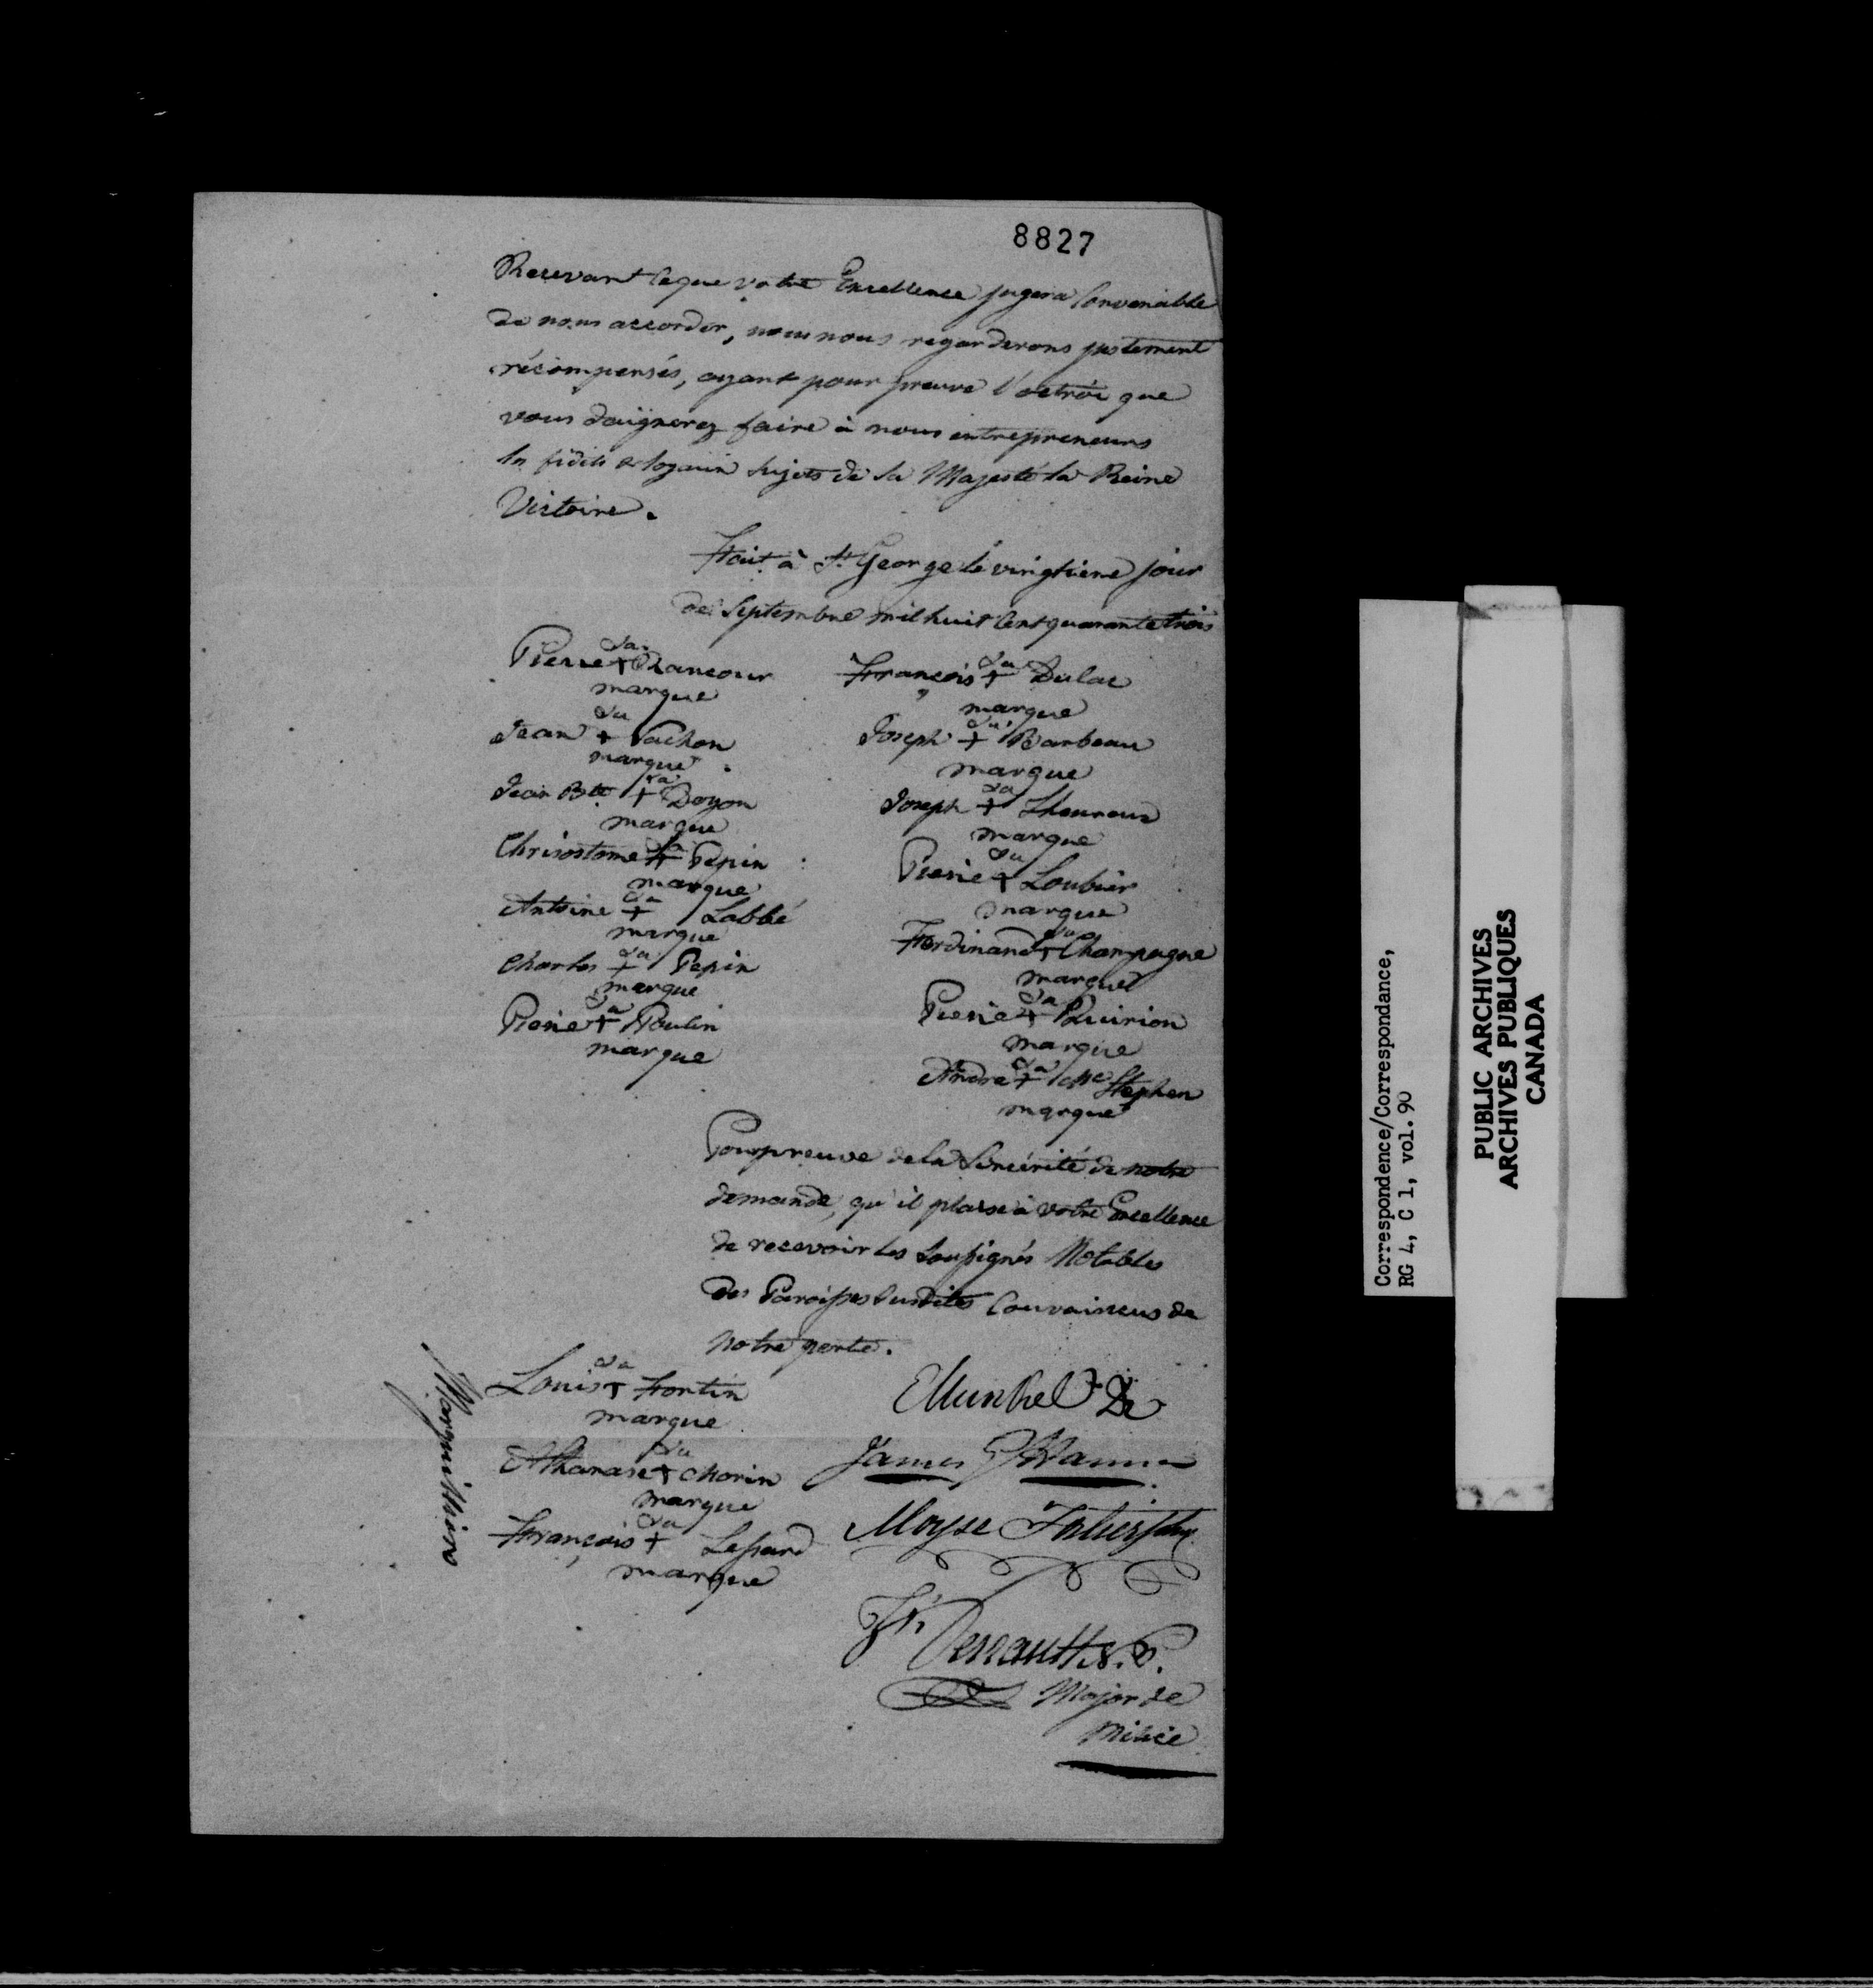 8827
Recevant ce que votre Excellence jugera Convenable
de nous accorder, nous nous regarderons justement
récompensés, ayant pour preuve l'octroi que
vous daignerez faire à nous entrepreneurs
les fidels & loyaux sujets de Sa Majesté la Reine
Victoire.
Fait à St George le vingtieme jour
de Septembre mil huit Cent quarante trois
Pierre sa + Rancour
marque
Jean sa + Vachon
marque
Jean Bte sa + Doyon
marque
Chrisostome sa + Pepin
marque
Antoine sa + Labbé
marque
Charles sa + Pepin
marque
Pierre sa + Poulin
marque
François sa + Dulac
marque
Joseph sa + Barbeau
marque
Joseph sa + Lheureux
marque
Pierre sa + Loubier
marque
Ferdinand sa + Champagne
marque
Pierre sa + Quirion
marque
André sa + Mc Stephen
marque
Pour preuve de la Sincérité de notre
demande, qu'il plaise à votre Excellence
de recevoir les Soussignés Notables
des Paroisses susdites Convaincus de
notre perte.
Marguilliers
Louis sa + Fortin
marque
Athanase sa + Morin
marque
François sa + Lessard
marque
James
Moyse
Frs N.P.
Major de
Milice
Correspondence/Correspondance,
RG 4, C 1, vol. 90
PUBLIC ARCHIVES
ARCHIVES PUBLIQUES
CANADA